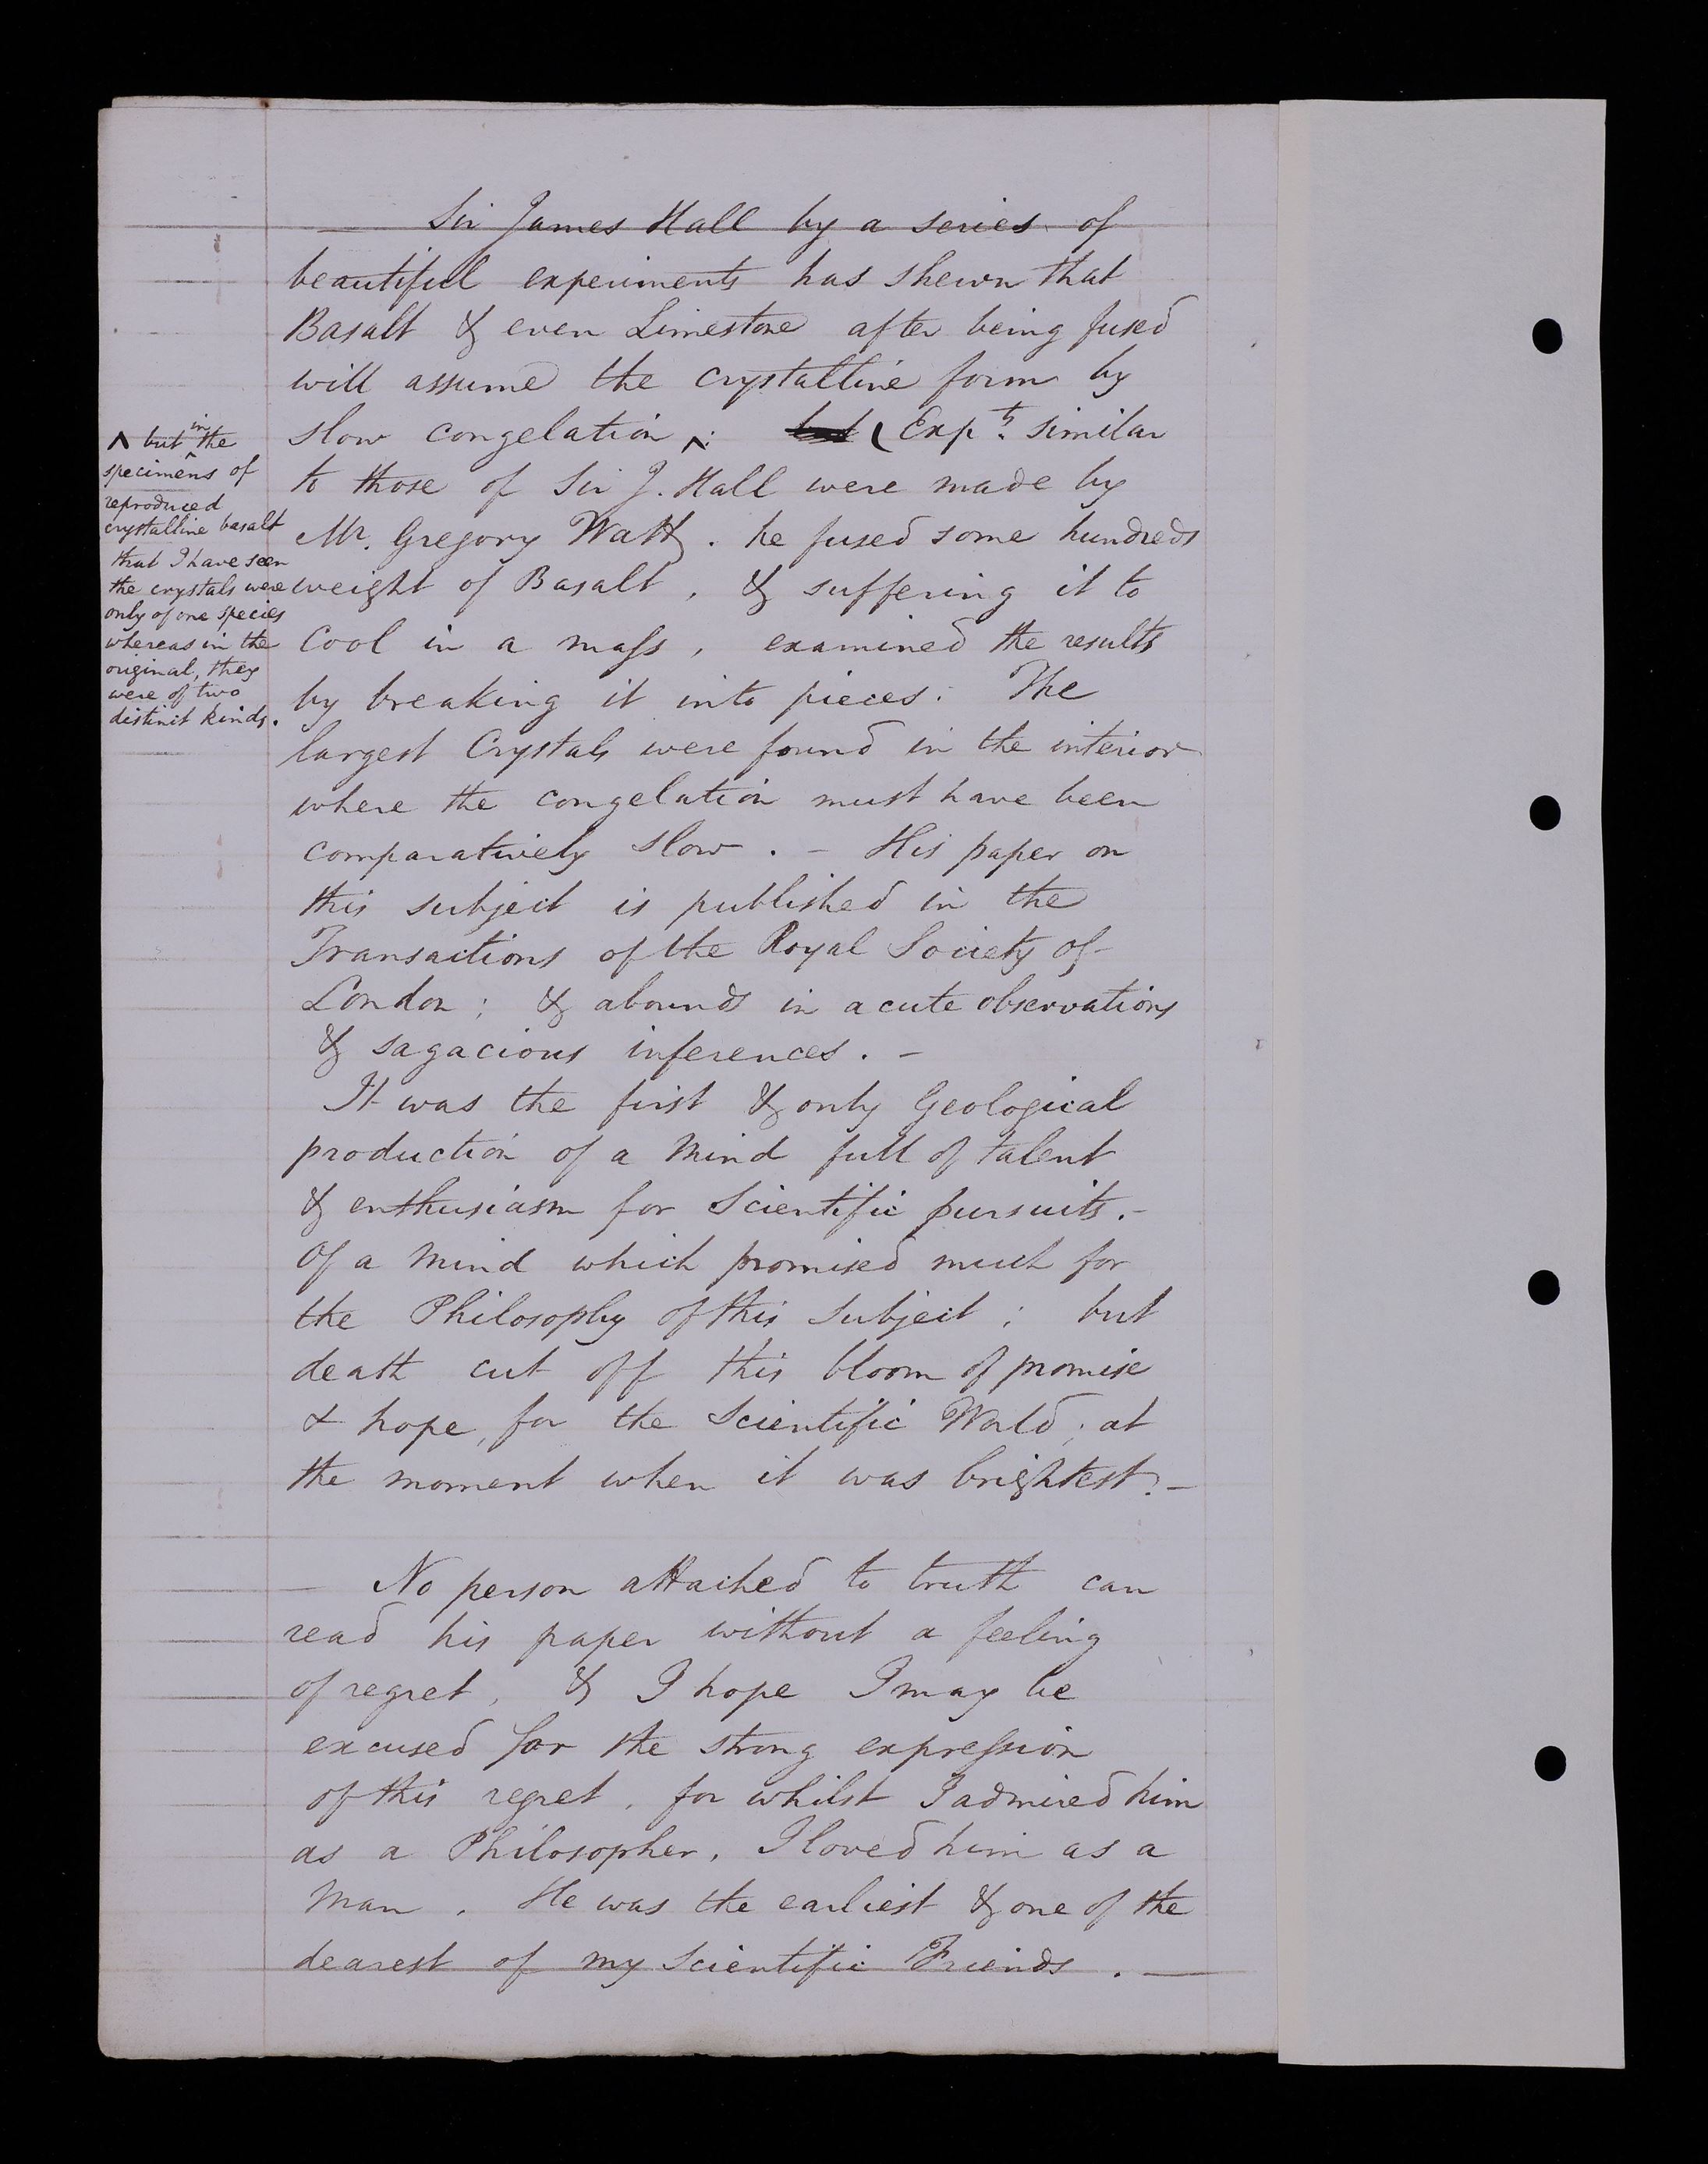 Sir James Hall by a series of
beautiful experiments has shewn that
Basalt & even Limestone after being fused
will assume the crystalline form by
slow congelation ^: (Expts. similar
to those of Sir J. Hall were made by
Mr. Gregory Watt. he fused some hundreds
weight of Basalt, & suffering it to
Cool in a mass, examined the results
by breaking it into pieces. The
largest Crystals were found in the interior
where the congelation must have been
comparatively slow. - His paper on
this subject is published in the
Transactions of the Royal Society of
London; & abounds in acute observations
& sagacious inferences. -
It was the first & only Geological
production of a Mind full of talent
& enthusiasm for Scientific pursuits. -
Of a Mind which promised much for
the Philosophy of this Subject; but
death cut off this bloom of promise
& hope, for the Scientific World; at
the moment when it was brightest. -
^ but in the
specimens of
reproduced
crystalline basalt
that I have seen
the crystals were
only of one species
whereas in the
original, they
were of two
distinct kinds.
- No person attached to truth can
read his paper without a feeling
of regret, & I hope I may be
excused for the strong expression
of this regret, for whilst I admired him
as a Philosopher, I loved him as a
Man. He was the earliest & one of the
dearest of my Scientific Friends. -